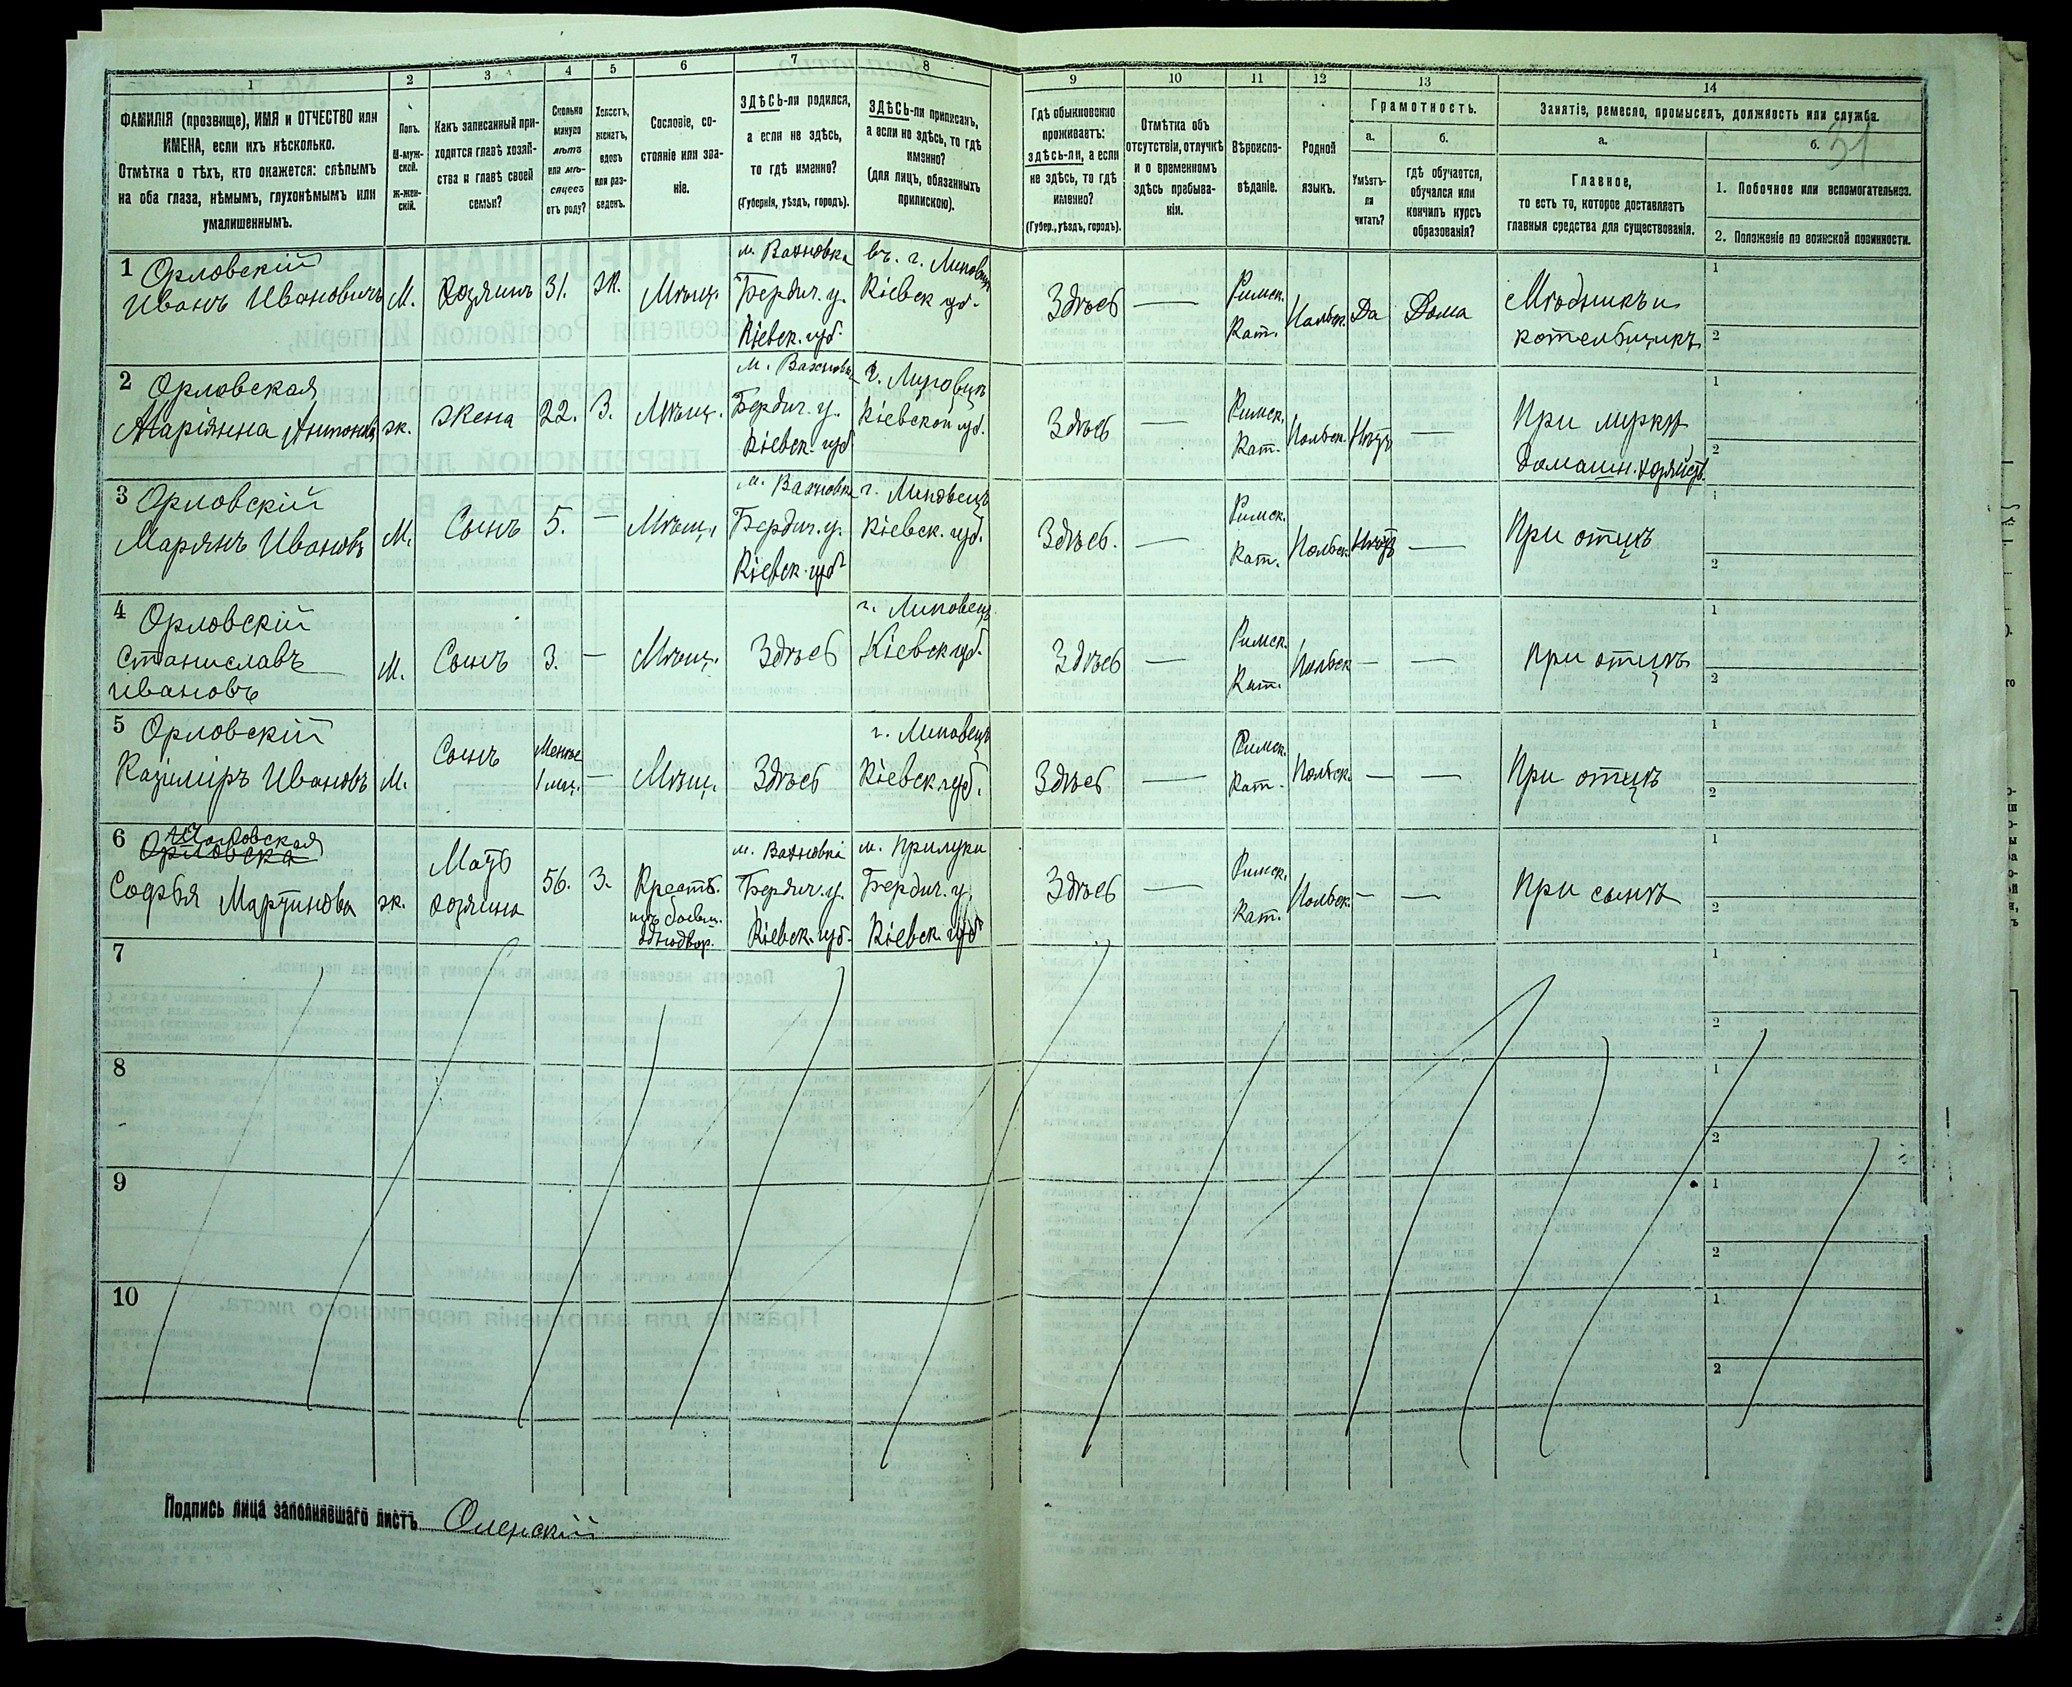 1 2 3 4 5 6 7 8 9 10 11 12 13 14
ФАМИЛІЯ (прозвище), ИМЯ и ОТЧЕСТВО или
ИМЕНА, если ихъ нѣсколько.
Отмѣтка о тѣхъ, кто окажется: слѣпымъ
на оба глаза, нѣмымъ, глухонѣмымъ или
умалишеннымъ.
Полъ.
М-муж-
ской.
Ж-жен-
скій.
Какъ записанный при-
ходится главѣ хозяй-
ства и главѣ своей
семьи?
Сколько
минуло
лѣтъ
или мѣ-
сяцевъ
отъ роду?
Холостъ,
женатъ,
вдовъ
или раз-
веденъ.
Сословіе, со-
стояніе или зва-
ніе.
ЗДѢСЬ-ли родился,
а если не здѣсь,
то гдѣ именно?
(Губернія, уѣздъ, городъ).
ЗДѢСЬ-ли приписанъ,
а если не здѣсь, то гдѣ
именно?
(для лицъ, обязанныхъ
припискою).
Гдѣ обыкновенно
проживаетъ:
здѣсь-ли, а если
не здѣсь, то гдѣ
именно?
(Губер., уѣздъ, городъ).
Отмѣтка объ
отсутствіи, отлучкѣ
и о временномъ
здѣсь пребыва-
ніи.
Вѣроиспо-
вѣданіе.
Родной
языкъ.
Грамотность.
а.
Умѣетъ-
ли
читать?
б.
гдѣ обучается,
обучался или
кончилъ курсъ
образованія?
Занятіе, ремесло, промыселъ, должность или служба.
31
а.
Главное,
то есть то, которое доставляетъ
главныя средства для существованія.
б.
1. Побочное или вспомогательное.
2. Положеніе по воинской повинности.
1 Орловскій
Иванъ Ивановичъ
М.
Хозяинъ
31.
Ж.
Мѣщ.
м. Вахновка
Бердич. у.
Кіевск. губ.
въ. г. Липовцѣ
Кіевск губ.
Здѣсь
—
Римск.
Кат.
Польск.
Да
Дома
Мѣдникъ и
котельщикъ
1
2
2 Орловская
Маріянна Антонова
ж.
жена
22.
З.
Мѣщ.
м. Вахновка
Бердич. у.
Кіевск. губ
г. Липовцѣ
Кіевской губ.
Здѣсь
—
Римск.
Кат.
Польск.
Нѣтъ
—
При мужѣ
домашн. хозяйств.
1
2
3 Орловскій
Марянъ Ивановъ
М.
Сынъ
5.
—
Мѣщ.
м. Вахновка
Бердич. у.
Кіевск. губ
г. Липовецъ
Кіевск. губ.
Здѣсь.
—
Римск.
Кат.
Польск.
Нѣтъ
—
При отцѣ
1
2
4 Орловскій
Станиславъ
Ивановъ
М.
Сынъ
3.
—
Мѣщ.
Здѣсь
г. Липовецъ
Кіевск губ.
Здѣсь
—
Римск.
Кат.
Польск
—
—
При отцѣ
1
2
5 Орловскій
Казиміръ Ивановъ
М.
Сынъ
Менѣе
1 мѣс.
—
Мѣщ.
Здѣсь
г. Липовецъ
Кіевск губ.
Здѣсь
—
Римск.
Кат.
Польск.
—
—
При отцѣ
1
2
6 Орловска
Софья Мартинова
ж.
Мать
хозяина
56.
З.
Крестъ.
изъ бывш.
однодвор.
м. Вахновка
Бердич. у.
Кіевск. губ.
м. Прилуки
Бердич. у.
Кіевск. губ
Здѣсь
—
Римск.
Кат.
Польск.
—
—
При сынѣ
1
2
7
1
2
8
1
2
9
1
2
10
1
2
Подпись лица заполнявшаго листъ